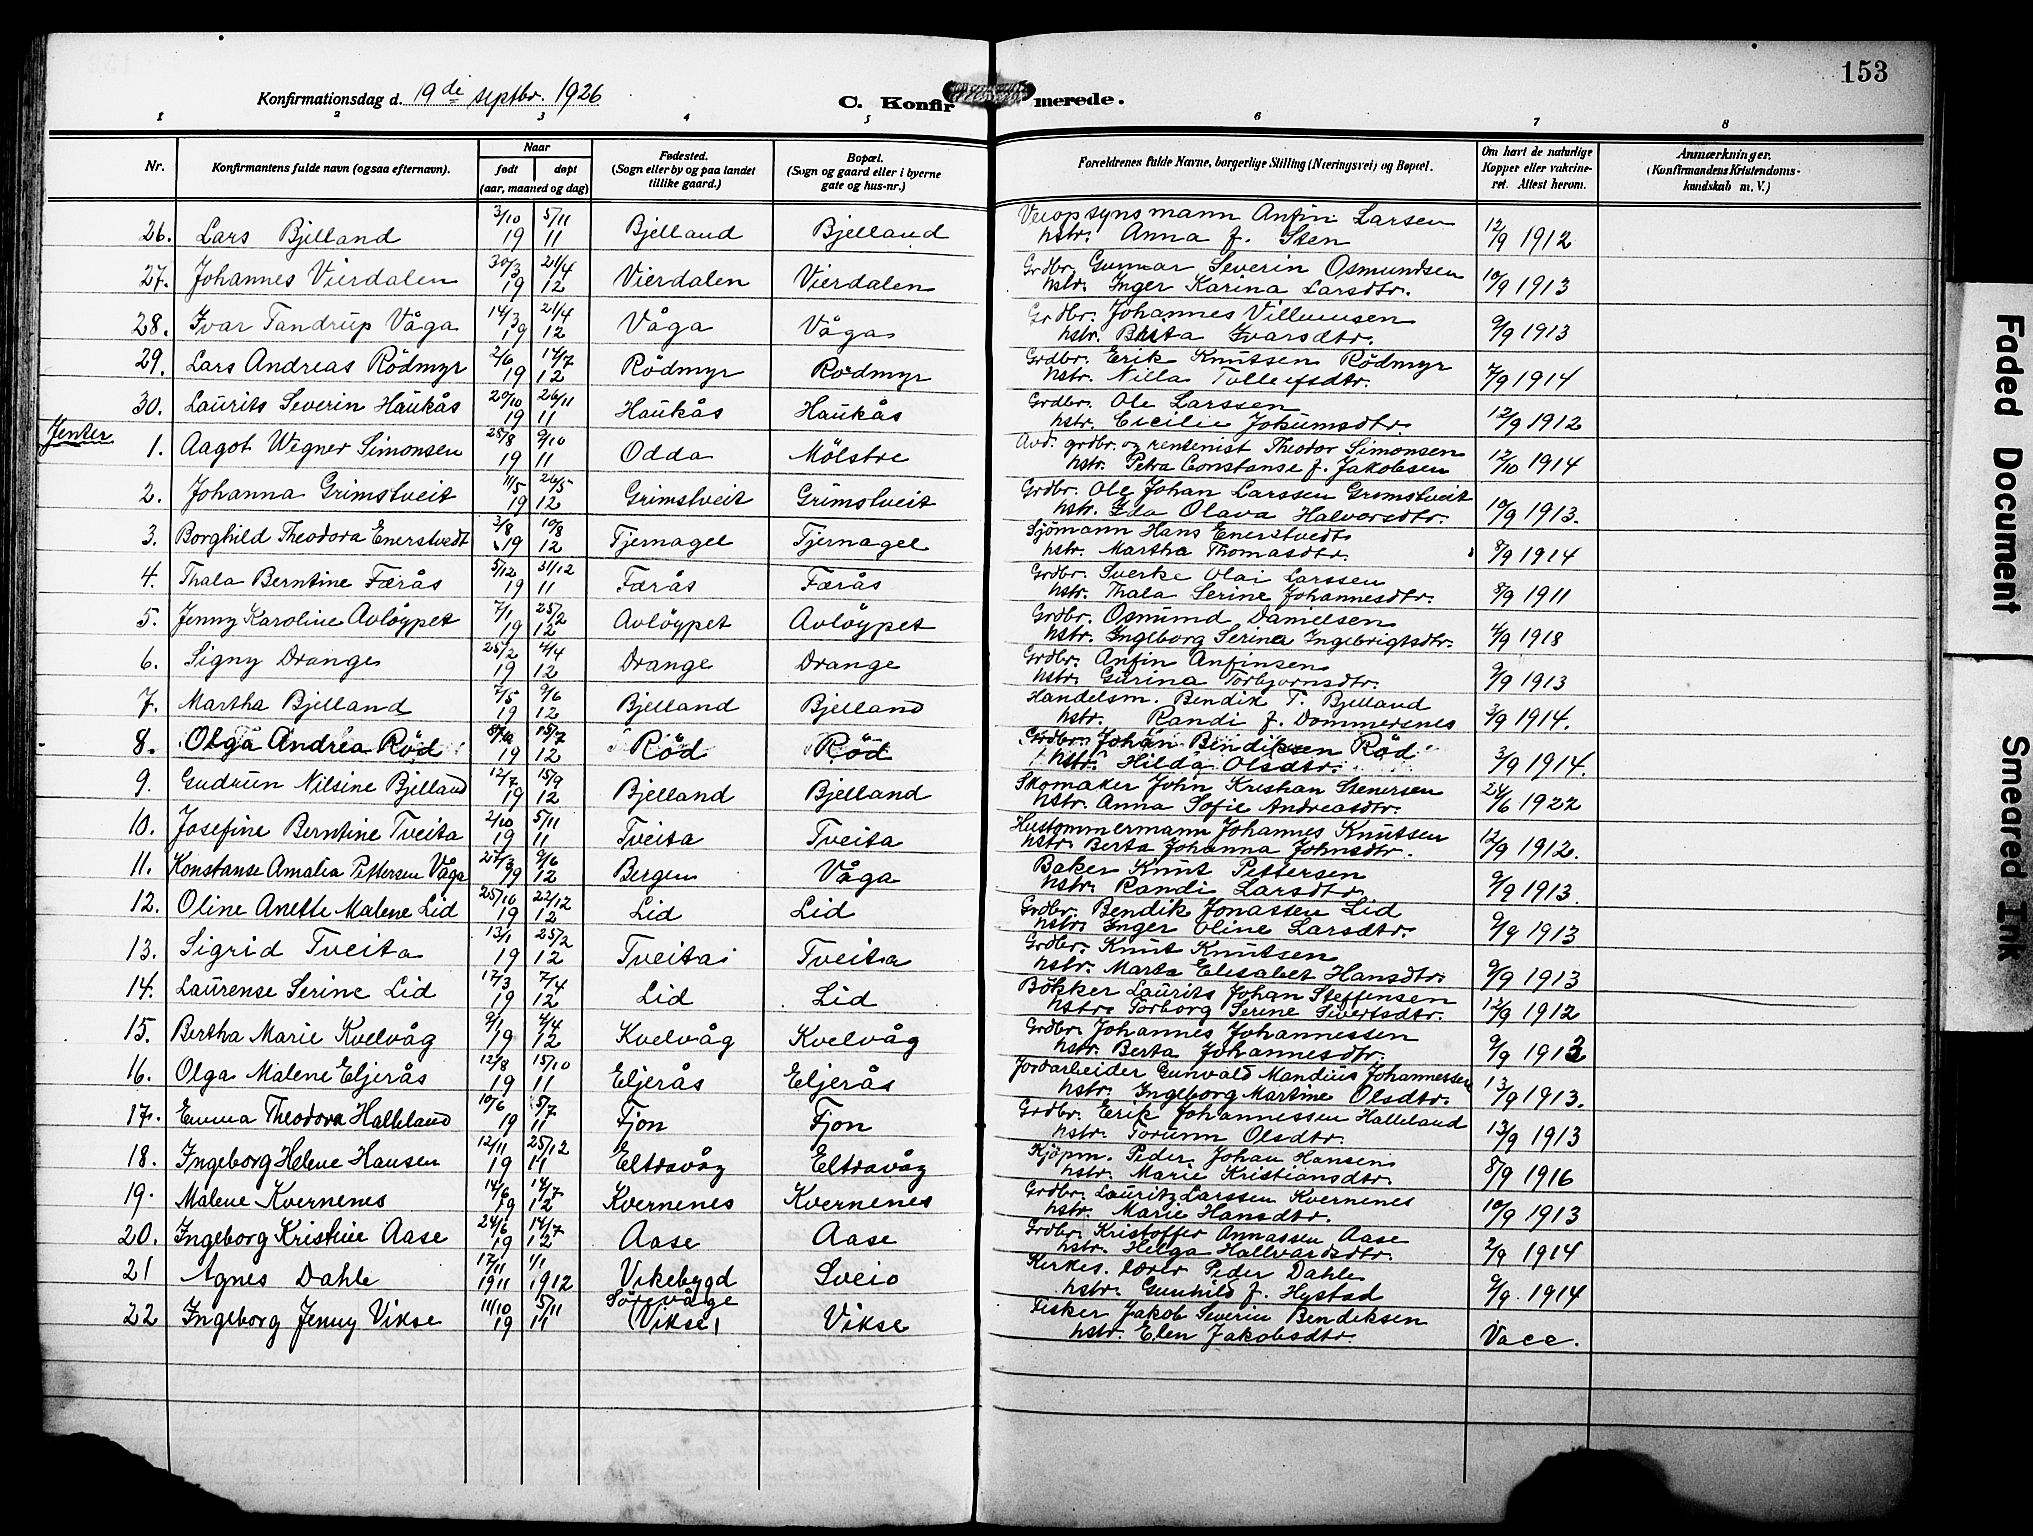 153
Konfirmationsdag d. 19de septbr. 1926
C. Konfirmerede.
1 2 3 4 5 6 7 8
Nr.
Konfirmantens fulde navn (ogsaa efternavn).
Naar
født døpt
(aar, maaned og dag)
Fødested.
(Sogn eller by og paa landet
tillike gaard.)
Bopæl.
(Sogn og gaard eller i byerne
gate og hus-nr.)
Forældrenes fulde Navne, borgerlige Stilling (Næringsvei) og Bopæl.
Om havt de naturlige
Kopper eller vakcine-
ret. Attest herom.
Anmærkninger.
(Konfirmandens Kristendoms-
kundskab m. V.)
3/10 5/11 Veiopsynsmann Anfin Larsen
26. Lars Bjelland 19 11 Bjelland Bjelland hstr. Anna f. Sten 12/9 1912
30/3 21/4 Grdbr. Gunnar Severin Osmundsen
27. Johannes Vierdalen 19 12 Vierdalen Vierdalen hstr. Inger Karina Larsdtr. 10/9 1913
14/3 21/4 Grdbr. Johannes Villumsen
28. Ivar Tandrup Våga 19 12 Våga Våga hstr. Brita Ivarsdtr. 9/9 1913
2/6 14/7 Grdbr. Erik Knutsen Rödmyr
29. Lars Andreas Rödmyr 19 12 Rödmyr Rödmyr hstr. Nilla Tolleifsdtr. 7/9 1914
20/10 26/11 Grdbr. Ole Larssen
30. Laurits Severin Haukås 19 11 Haukås Haukås hstr. Cecilie Jokumsdtr. 12/9 1912
Jenter
25/8 9/10 Avd. grdbr. og rentenist Theodor Simonsen
1. Aagot Wegner Simonsen 19 11 Odda Mölstre hstr. Petra Constanse f. Jakobsen 12/10 1914
11/5 26/5 Grdbr. Ole Johan Larssen Grimstveit
2. Johanna Grimstveit 19 12 Grimstveit Grimstveit hstr. Ida Olava Halvorsdtr. 10/9 1913.
3/8 10/8 Sjömann Hans Enerstvedt
3. Borghild Theodora Enerstvedt 19 12 Tjernagel Tjernagel hstr. Martha Thomasdtr. 8/9 1914
5/12 31/12 Grdbr. Sverke Olai Larssen
4. Thala Berntine Færås 19 11 Færås Færås hstr. Thala Serine Johannesdtr. 8/9 1911
7/1 25/2 Grdbr. Osmund Danielsen
5. Jenny Karoline Avlöypet 19 12 Avlöypet Avlöypet hstr. Ingeborg Serina Ingebrigtsdtr. 4/9 1918
25/2 4/4 Grdbr. Anfin Anfinsen
6. Signy Drange 19 12 Drange Drange hstr. Gurina Torbjornsdtr. 9/9 1913
7/5 9/6 Handelsm. Bendik T. Bjelland
7. Martha Bjelland 19 12 Bjelland Bjelland hstr. Randi f. Dommersnes 3/9 1914.
15/7 Grdbr. Johan Bendiksen Röd
8. Olga Andrea Röd 19 12 Röd Röd hstr. Hilda Olsdtr. 3/9 1914.
12/7 15/9 Skomaker John Kristian Stenersen
9. Gudrun Nilsine Bjelland 19 12 Bjelland Bjelland hstr. Anna Sofie Andreasdtr. 24/6 1922
2/10 5/11 Hustommermann Johannes Knutsen
10. Josefine Berntine Tveita 19 11 Tveita Tveita hstr. Berta Johanna Johnsdtr. 12/9 1912.
27/3 9/6 Baker Knut Pettersen
11. Konstanse Amalia Pettersen Våga 19 12 Bergen Våga hstr. Randi Larsdtr. 9/9 1913.
25/10 22/12 Grdbr. Bendik Jonassen Lid
12. Oline Anette Malene Lid 19 12 Lid Lid hstr. Inger Oline Larsdtr. 9/9 1913
13/1 25/2 Grdbr. Knut Knutsen
13. Sigrid Tveita 19 12 Tveita Tveita hstr. Marta Elisabet Hansdtr. 9/9 1913
17/3 7/4 Bökker Laurits Johan Steffensen
14. Laurense Serine Lid 19 12 Lid Lid hstr. Torborg Serine Sivertsdtr. 12/9 1912
9/1 4/4 Grdbr. Johannes Johannessen
15. Bertha Marie Kvelvåg 19 12 Kvelvåg Kvelvåg hstr. Berta Johannesdtr. 9/9 1913
12/8 15/10 Jordarbeider Gunvald Mandius Johannessen
16. Olga Malene Eljerås 19 11 Eljerås Eljerås hstr. Ingeborg Martine Olsdtr. 13/9 1913.
10/6 5/7 Grdbr. Erik Johannessen Halleland
17. Emma Theodora Halleland 19 11 Tjon Tjon hstr. Torunn Olsdtr. 13/9 1913
12/11 25/12 Kjöpm. Peder Johan Hansen
18. Ingeborg Helene Hansen 19 11 Eltravåg Eltravåg hstr. Marie Kristiansdtr. 8/9 1916
14/6 14/7 Grdbr. Lauritz Larssen Kvernenes
19. Malene Kvernenes 19 12 Kvernenes Kvernenes hstr. Marie Hansdtr. 10/9 1913
24/6 14/7 Grdbr. Kristoffer Annassen Aase
20. Ingeborg Kristine Aase 19 12 Aase Aase hstr. Helga Hallvardsdtr. 2/9 1914
17/11 1/1 Kirkes. lærer Peder Dahle
21 Agnes Dahle 1911 1912 Vikebygd Sveio hstr. Gunhild f. Hystad 9/9. 1914
11/10 5/11 Sörevåge Fisker Jakob Severin Bendiksen
22 Ingeborg Jenny Vikse 19 11 (Vikse) Vikse hstr. Elen Jakobsdtr. Vacc.
Faded Document
Smeared Ink